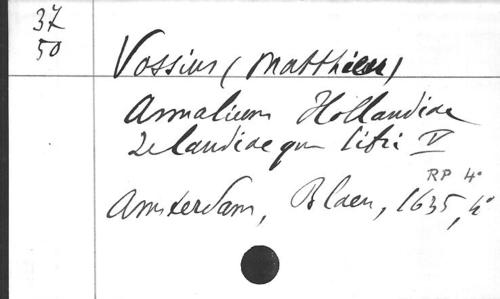 37
50
Vossius (Matthieu)
Annalium Hollandiae
Zelandiaeque libri V
RP 4°
Amsterdam, Blaeu, 1635, 4°